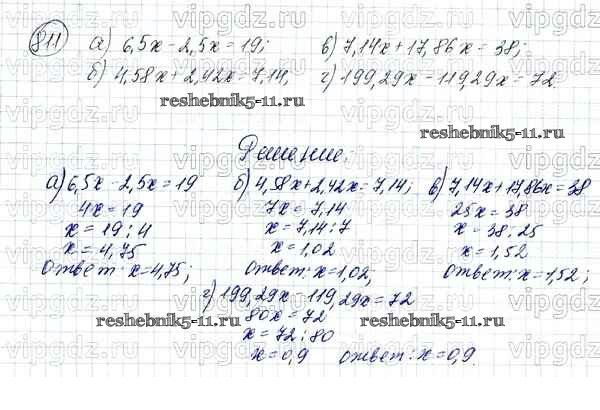 811 а) 6,5x - 2,5x = 19; в) 7,14x + 17,86x = 38;
б) 4,58x + 2,42x = 7,14, г) 199,29x - 119,29x = 72
reshebnik5-11.ru
reshebnik5-11.ru
Решение:
а) 6,5x - 2,5x = 19
4x = 19
x = 19 : 4
x = 4,75
ответ: x = 4,75;
б) 4,58x + 2,42x = 7,14;
7x = 7,14
x = 7,14 : 7
x = 1,02
ответ: x = 1,02,
в) 7,14x + 17,86x = 38
25x = 38
x = 38 : 25
x = 1,52
ответ: x = 1,52;
г) 199,29x - 119,29x = 72
80x = 72
x = 72 : 80
x = 0,9 ответ: x = 0,9.
reshebnik5-11.ru
reshebnik5-11.ru
vipgdz.ru